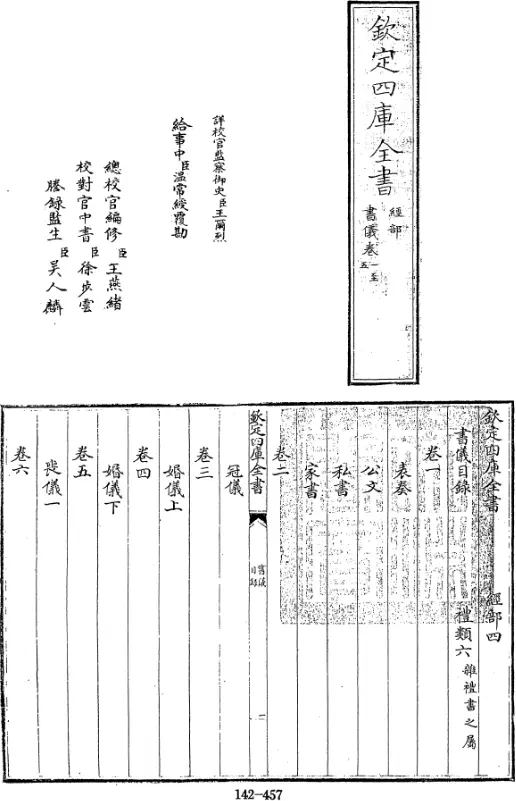 欽定四庫全書
經部
書儀卷一至五
詳校官監察御史臣王爾烈
給事中臣溫常綬覆勘
總校官編修臣王燕緒
校對官中書臣徐步雲
謄錄監生臣吴人麟
欽定四庫全書
經部四
書儀目録
禮類六雜禮書之屬
卷一
表奏
公文
私書
家書
卷二
冠儀
欽定四庫全書
書儀
目録
一
卷三
婚儀上
卷四
婚儀下
卷五
喪儀一
卷六
142-457